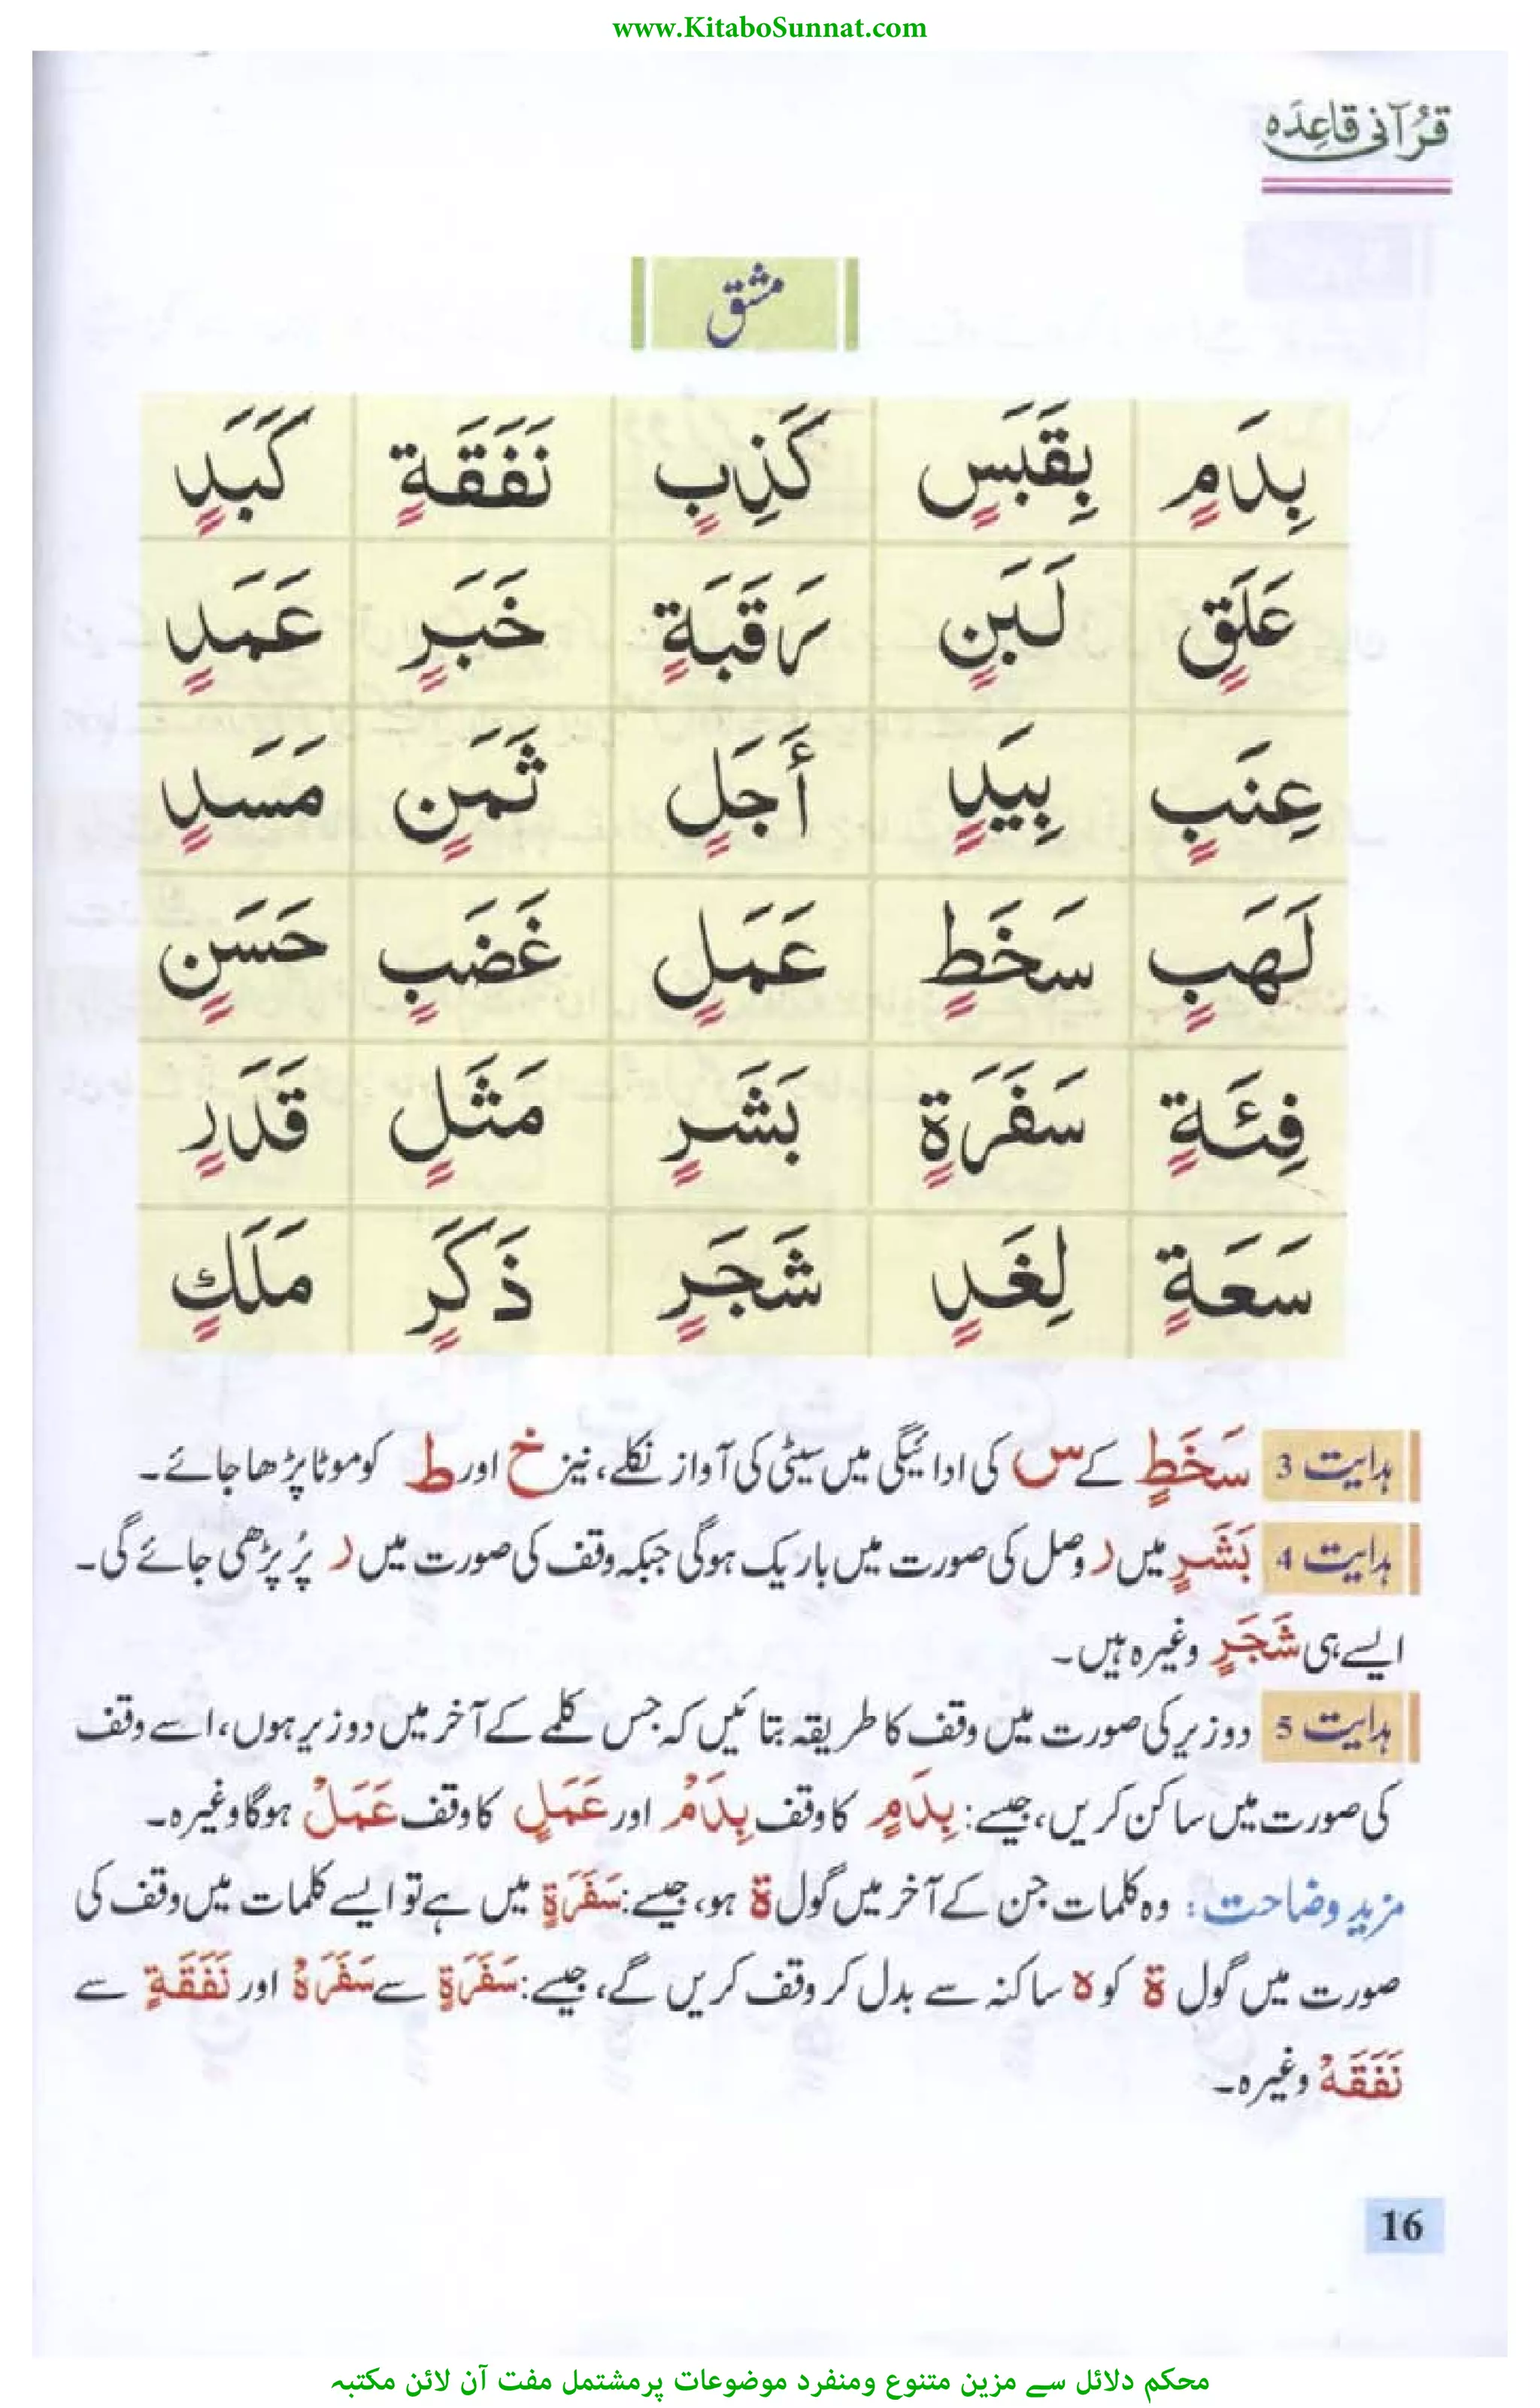 www.KitaboSunnat.com
قرآنی قاعِدَہ
مشق
بِدَمٍ بِقَبَسٍ كَذِبٍ نَفَقَةٍ كَبَدٍ
عَلَقٍ لَبَنٍ رَقَبَةٍ خَبَرٍ عَمَدٍ
عِنَبٍ بِيَدٍ أَجَلٍ ثَمَنٍ مَسَدٍ
لَهَبٍ سَخَطٍ عَمَلٍ غَضَبٍ حَسَنٍ
فِئَةٍ سَفَرَةٍ بَشَرٍ مَثَلٍ قَدَرٍ
سَعَةٍ لِغَدٍ شَجَرٍ ذَكَرٍ مَلَكٍ
ہدایت 3 سَخَطٍ کے س کی ادائیگی میں سیٹی کی آواز نکلے، نیز خ اور ط کو موٹا پڑھا جائے۔
ہدایت 4 بَشَرٍ میں ر وصل کی صورت میں باریک ہوگی جبکہ وقف کی صورت میں ر پُر پڑھی جائے گی۔
ایسے ہی شَجَرٍ وغیرہ ہیں۔
ہدایت 5 دو زیر کی صورت میں وقف کا طریقہ بتائیں کہ جس کلمے کے آخر میں دو زیر ہوں، اسے وقف
کی صورت میں ساکن کریں، جیسے: بِدَمٍ کا وقف بِدَمْ اور عَمَلٍ کا وقف عَمَلْ ہوگا وغیرہ۔
مزید وضاحت: وہ کلمات جن کے آخر میں گول ة ہو، جیسے: سَفَرَةٍ میں ہے تو ایسے کلمات میں وقف کی
صورت میں گول ة کو ہ ساکنہ سے بدل کر وقف کریں گے، جیسے: سَفَرَةٍ سے سَفَرَهْ اور نَفَقَةٍ سے
نَفَقَهْ وغیرہ۔
16
محکم دلائل سے مزین متنوع ومنفرد موضوعات پر مشتمل مفت آن لائن مکتبہ